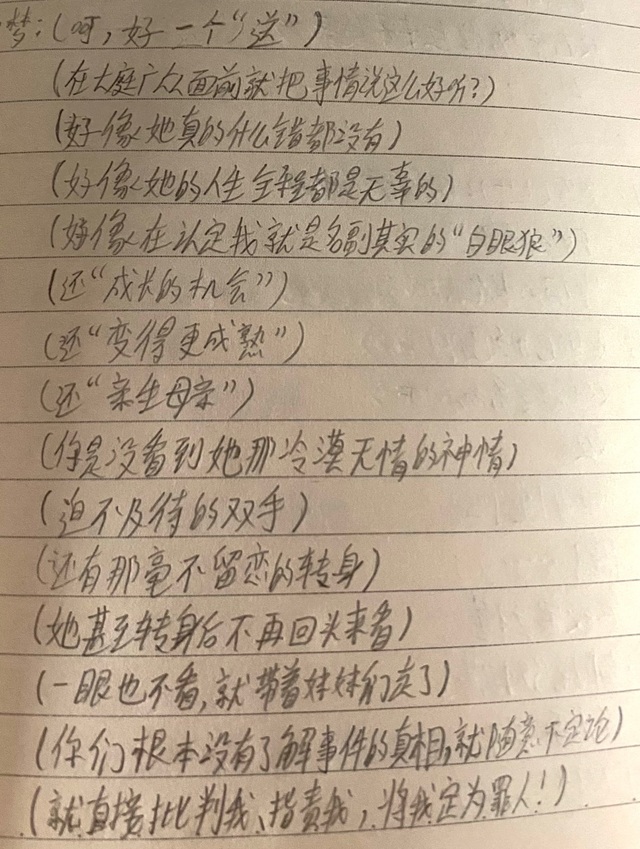 梦：(呵，好一个“送”)
(在大庭广众面前就把事情说这么好听？)
(好像她真的什么错都没有)
(好像她的人生全程都是无辜的)
(好像在认定我就是名副其实的“白眼狼”)
(还“成长的机会”)
(还“变得更成熟”)
(还“亲生母亲”)
(你是没看到她那冷漠无情的神情)
(迫不及待的双手)
(还有那毫不留恋的转身)
(她甚至转身后不再回头来看)
(一眼也不看，就带着妹妹们走了)
(你们根本没有了解事件的真相，就随意下定论)
(就直接批判我、指责我，将我定为罪人！)